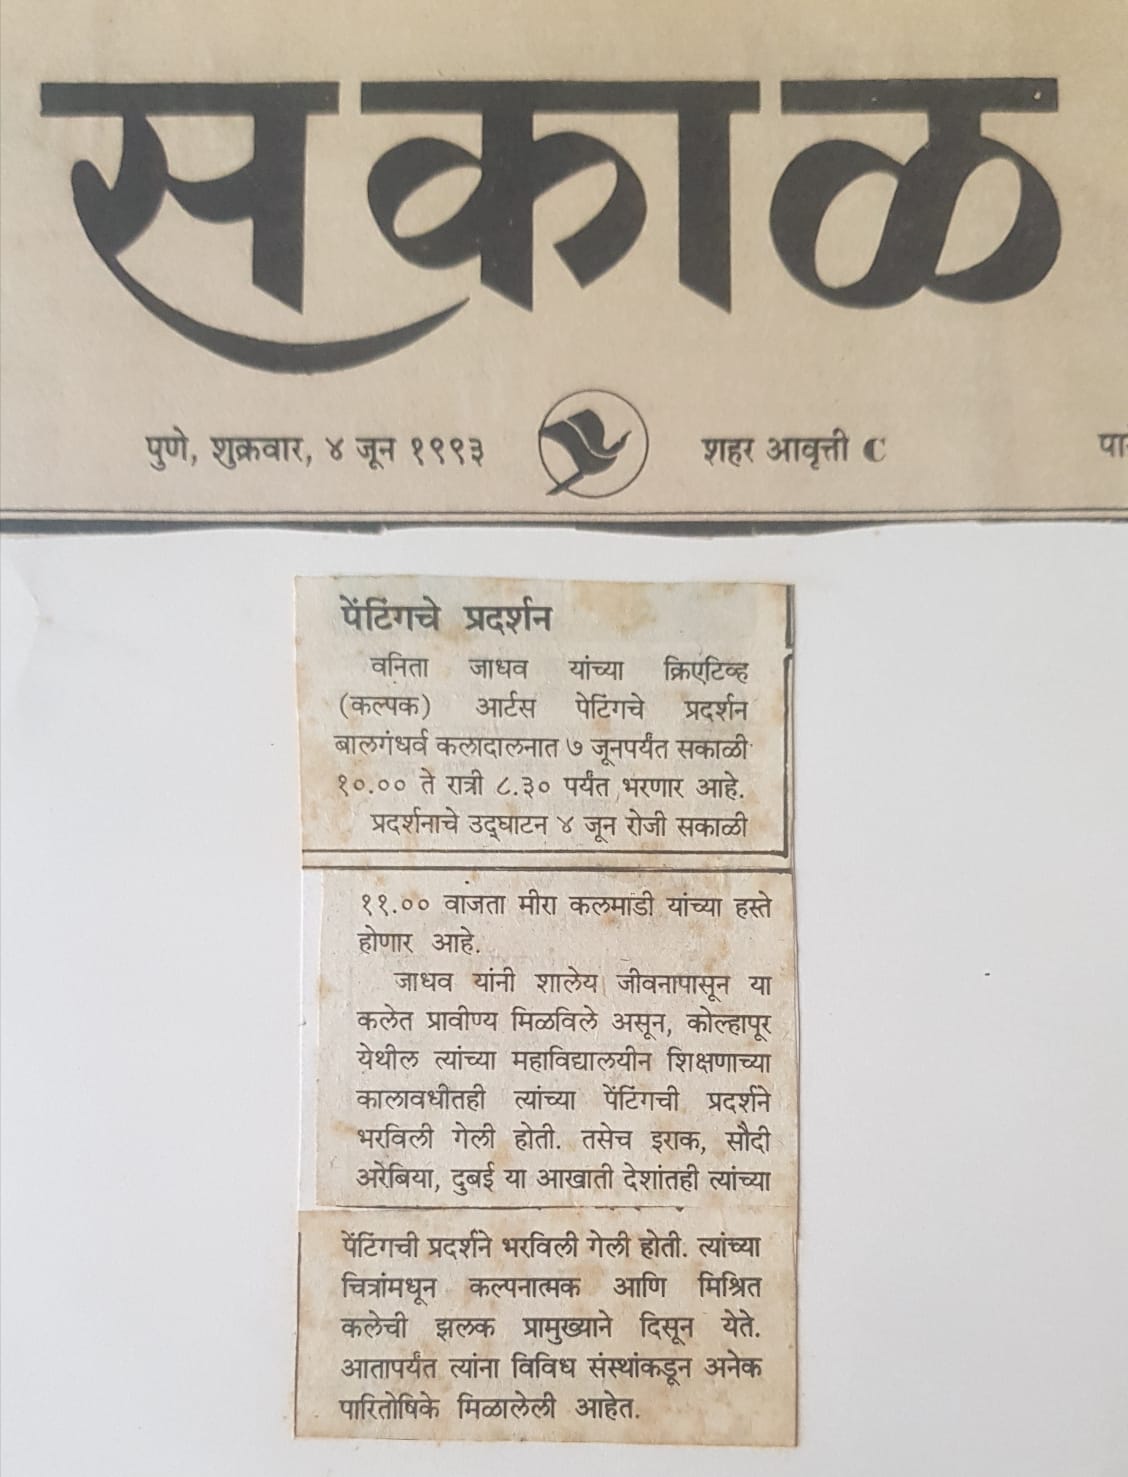 सकाळ
पुणे, शुक्रवार, ४ जून १९९३
शहर आवृत्ती C
पेंटिंगचे प्रदर्शन
वनिता जाधव यांच्या क्रिएटिव्ह
(कल्पक) आर्टस पेटिंगचे प्रदर्शन
बालगंधर्व कलादालनात ७ जूनपर्यंत सकाळी
१०.०० ते रात्री ८.३० पर्यंत भरणार आहे.
प्रदर्शनाचे उद्‌घाटन ४ जून रोजी सकाळी
११.०० वाजता मीरा कलमाडी यांच्या हस्ते
होणार आहे.
जाधव यांनी शालेय जीवनापासून या
कलेत प्रावीण्य मिळविले असून, कोल्हापूर
येथील त्यांच्या महाविद्यालयीन शिक्षणाच्या
कालावधीतही त्यांच्या पेंटिंगची प्रदर्शने
भरविली गेली होती. तसेच इराक, सौदी
अरेबिया, दुबई या आखाती देशांतही त्यांच्या
पेंटिंगची प्रदर्शने भरविली गेली होती. त्यांच्या
चित्रांमधून कल्पनात्मक आणि मिश्रित
कलेची झलक प्रामुख्याने दिसून येते.
आतापर्यंत त्यांना विविध संस्थांकडून अनेक
पारितोषिके मिळालेली आहेत.